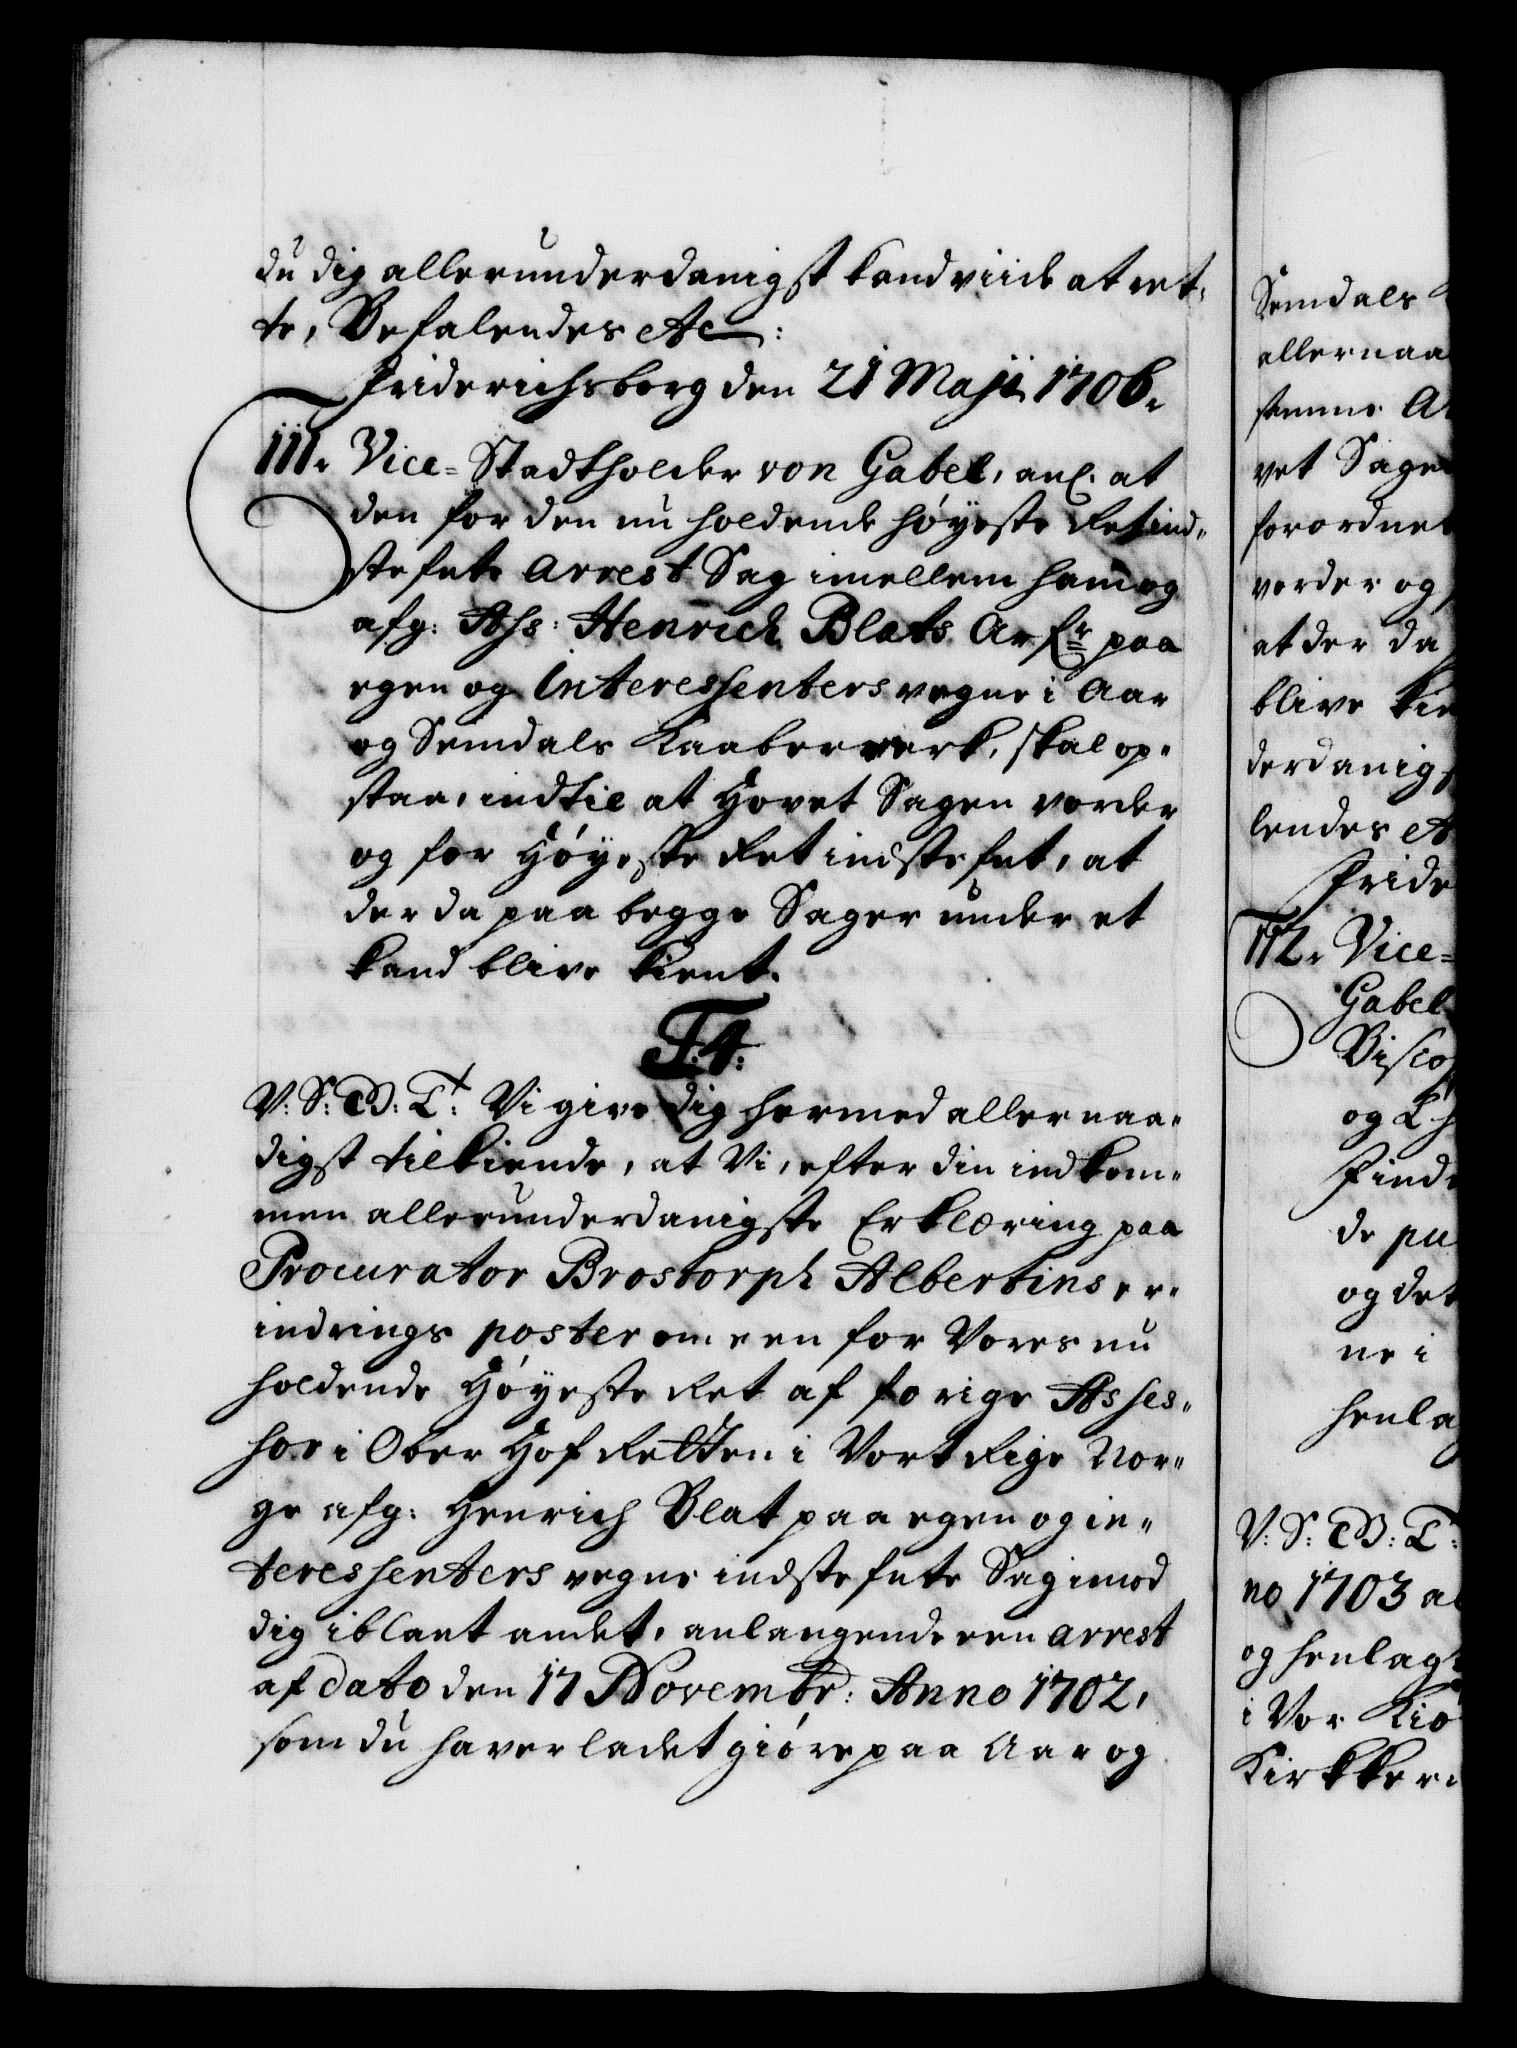 du dig allerunderdanigst kand viide at ret-
te, Befalendes etc:
Friderichsborg den 21 Maji 1706.
111. Vice-Stadtholder von Gabel, anl. at
den for den nu holdende höyeste Ret ind-
stefnte Arrest Sag imellem ham og
afg: Ass: Henrich Blats Arfr paa
egen og Interessenters vegne i Aar
og Semdals Kaaberverk, skal op-
staa, indtil at Hovet Sagen vorder
og for Höyeste Ret indstefnt, at
der da paa begge Sager under et
kand blive kient.
F.4.
V: S: G: B: T: Vi give dig hermed allernaa-
digst tilkiende, at Vi, efter din indkom-
men allerunderdanigste Erklæring paa
Procurator Brostorph Albertins er-
indrings poster om een for Vores nu
holdende Höyeste Ret af forige Asses-
sor i Ober Hof Retten i Vort Rige Nor-
ge afg: Henrich Blat paa egen og in-
teressenters vegne indstefnte Sag imod
dig iblant andet, anlangende een arrest
af dato den 17 Novembr: Anno 1702,
som du haver ladet giöre paa Aar og
Semdals
allernaa
stemme
vet Sage
forordnet
vorder og
at der da
blive kie
derdanigs
lendes
Fride
112. Vice-
Gabel
Bisco
og
Find
de pu
og det
ne i
henla
V: S: G: B: T:
no 1703 al
og henlag
i Vor Kiö
Kirkker